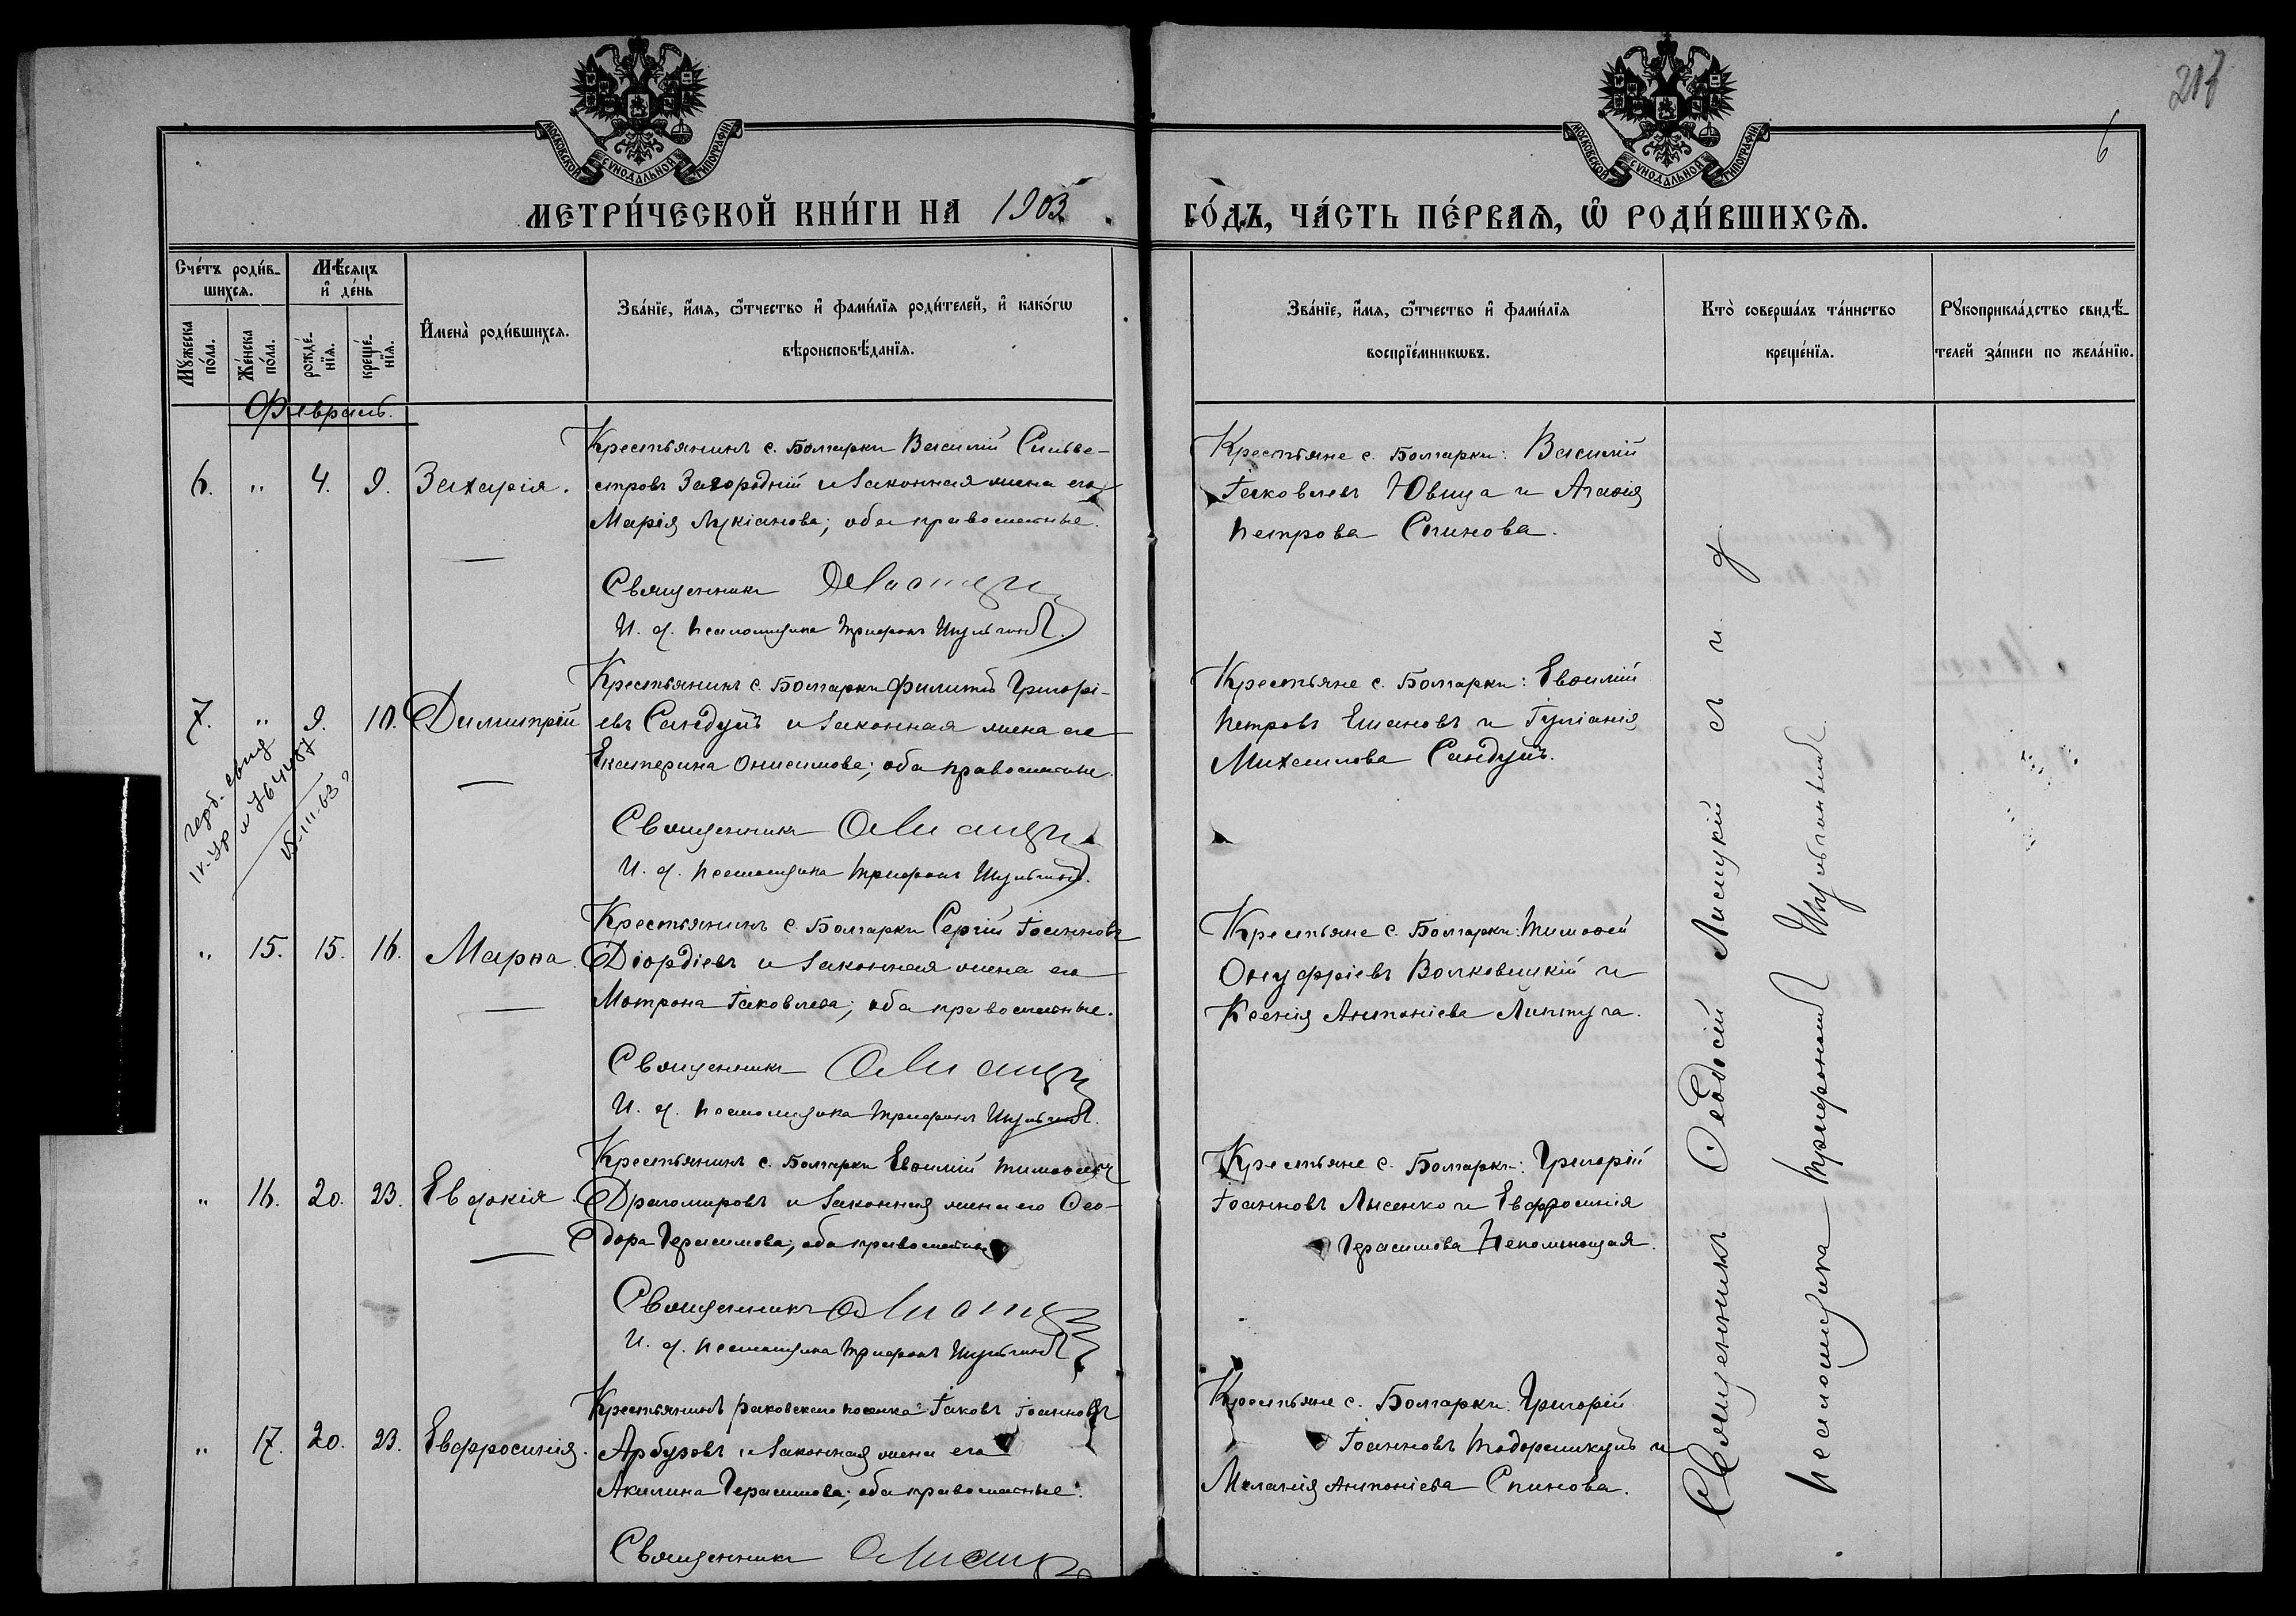 217
6
МОСКОВСКОЙ СѴНОДАЛЬНОЙ ТИПОГРАФІИ.
МОСКОВСКОЙ СѴНОДАЛЬНОЙ ТИПОГРАФІИ.
МЕТРИ́ЧЕСКОЙ КНИ́ГИ НА 1903
ГО́ДЪ, ЧА́СТЬ ПЕ́РВАЯ, Ѽ РОДИ́ВШИХСѦ.
Сче́тъ роди́в-
шихсѧ.
Мꙋ́жеска по́ла.
Же́нска по́ла.
Мѣ́сѧцъ и҆ де́нь
рожде́-
нїѧ.
креще́-
нїѧ.
И҆мена̀ роди́вшихсѧ.
Зва́нїе, и҆́мѧ, ѻ҆́тчество и҆ фами́лїѧ роди́телей, и҆ како́гѡ
вѣроисповѣ́данїѧ.
Зва́нїе, и҆́мѧ, ѻ҆́тчество и҆ фами́лїѧ
воспрїе́мникѡвъ.
Кто̀ соверша́лъ та́инство
креще́нїѧ.
Рꙋкоприкла́дство свидѣ́-
телей за́писи по жела́нїю.
Февраль.
6. „ 4. 9. Захарія.
Крестьянинъ с. Болгарки Василій Сильве-
стровъ Загородній и законная жена его
Марія Лукіанова; оба православные.
Священникъ
И. д. псаломщика Трифонъ Шульгинъ.
Крестьяне с. Болгарки: Василій
Іаковлевъ Ювица и Агаѳія
Петрова Спинова.
7. „ 9. 10. Димитрій
герб. свид
IV-УР № 764487
15-III-63 г
Крестьянинъ с. Болгарки Филиппъ Григорі-
евъ Сандулъ и законная жена его
Екатерина Онисимова; оба православные.
Священникъ
И. д. псаломщика Трифонъ Шульгинъ.
Крестьяне с. Болгарки: Евѳимій
Петровъ Ешановъ и Іуліанія
Михаилова Сандулъ.
„ 15. 15. 16. Марѳа.
Крестьянинъ с. Болгарки Сергій Іоанновъ
Діордіевъ и законная жена его
Мотрона Іаковлева; оба православные.
Священникъ
И. д. псаломщика Трифонъ Шульгинъ.
Крестьяне с. Болгарки: Тимоѳей
Онуфріевъ Волковицкій и
Ксенія Антоніева Липтуга.
„ 16. 20. 23. Евдокія.
Крестьянинъ с. Болгарки Евѳимій Тимоѳеевъ
Драгомировъ и законная жена его Ѳео-
дора Герасимова; оба православные
Священникъ
И. д. псаломщика Трифонъ Шульгинъ
Крестьяне с. Болгарки: Григорій
Іоанновъ Лысенко и Евфросинія
Герасимова Непомнющая.
„ 17. 20. 23. Евфросинія.
Крестьянинъ Раковскаго поселка Іаковъ Іоанновъ
Арбузовъ и законная жена его
Акилина Герасимова; оба православные.
Священникъ
Крестьяне с. Болгарки: Григорій
Іоанновъ Тодорашкулъ и
Меланія Антоніева Спинова.
Священникъ Ѳеодосій Лисицкій съ и. д.
псаломщика Трифономъ Шульгинымъ